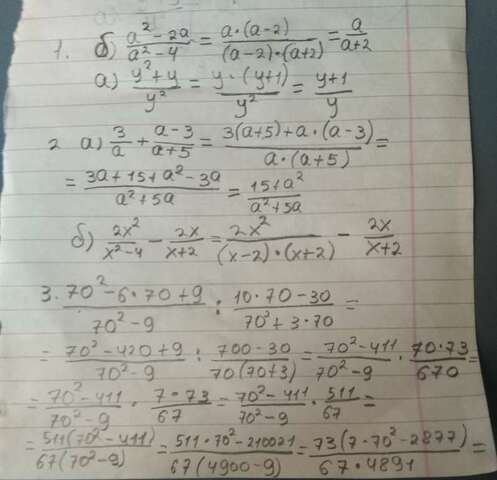 1. б) (a² - 2a)/(a² - 4) = (a·(a-2))/((a-2)·(a+2)) = a/(a+2)
а) (y² + y)/y² = (y·(y+1))/y² = (y+1)/y
2 а) 3/a + (a-3)/(a+5) = (3(a+5)+a·(a-3))/(a·(a+5)) =
= (3a+15+a²-3a)/(a²+5a) = (15+a²)/(a²+5a)
б) 2x²/(x²-4) - 2x/(x+2) = 2x²/((x-2)·(x+2)) - 2x/(x+2)
3. (70²-6·70+9)/(70²-9) : (10·70-30)/(70²+3·70) =
= (70²-420+9)/(70²-9) : (700-30)/(70(70+3)) = (70²-411)/(70²-9) · (70·73)/670 =
= (70²-411)/(70²-9) · (7·73)/67 = (70²-411)/(70²-9) · 511/67 =
= (511(70²-411))/(67(70²-9)) = (511·70²-210021)/(67(4900-9)) = (73(7·70²-2877))/(67·4891) =